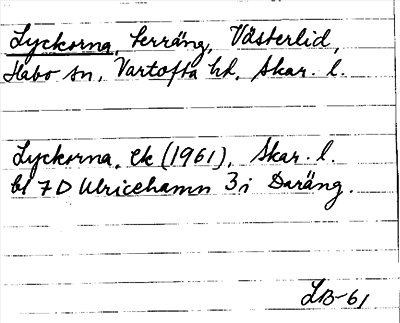 Lyckorna, terräng, Västerlid,
Habo sn, Vartofta hd, Skar. l.
Lyckorna, ek (1961), Skar. l.
bl 7D Ulricehamn 3i Daräng.
LB-61